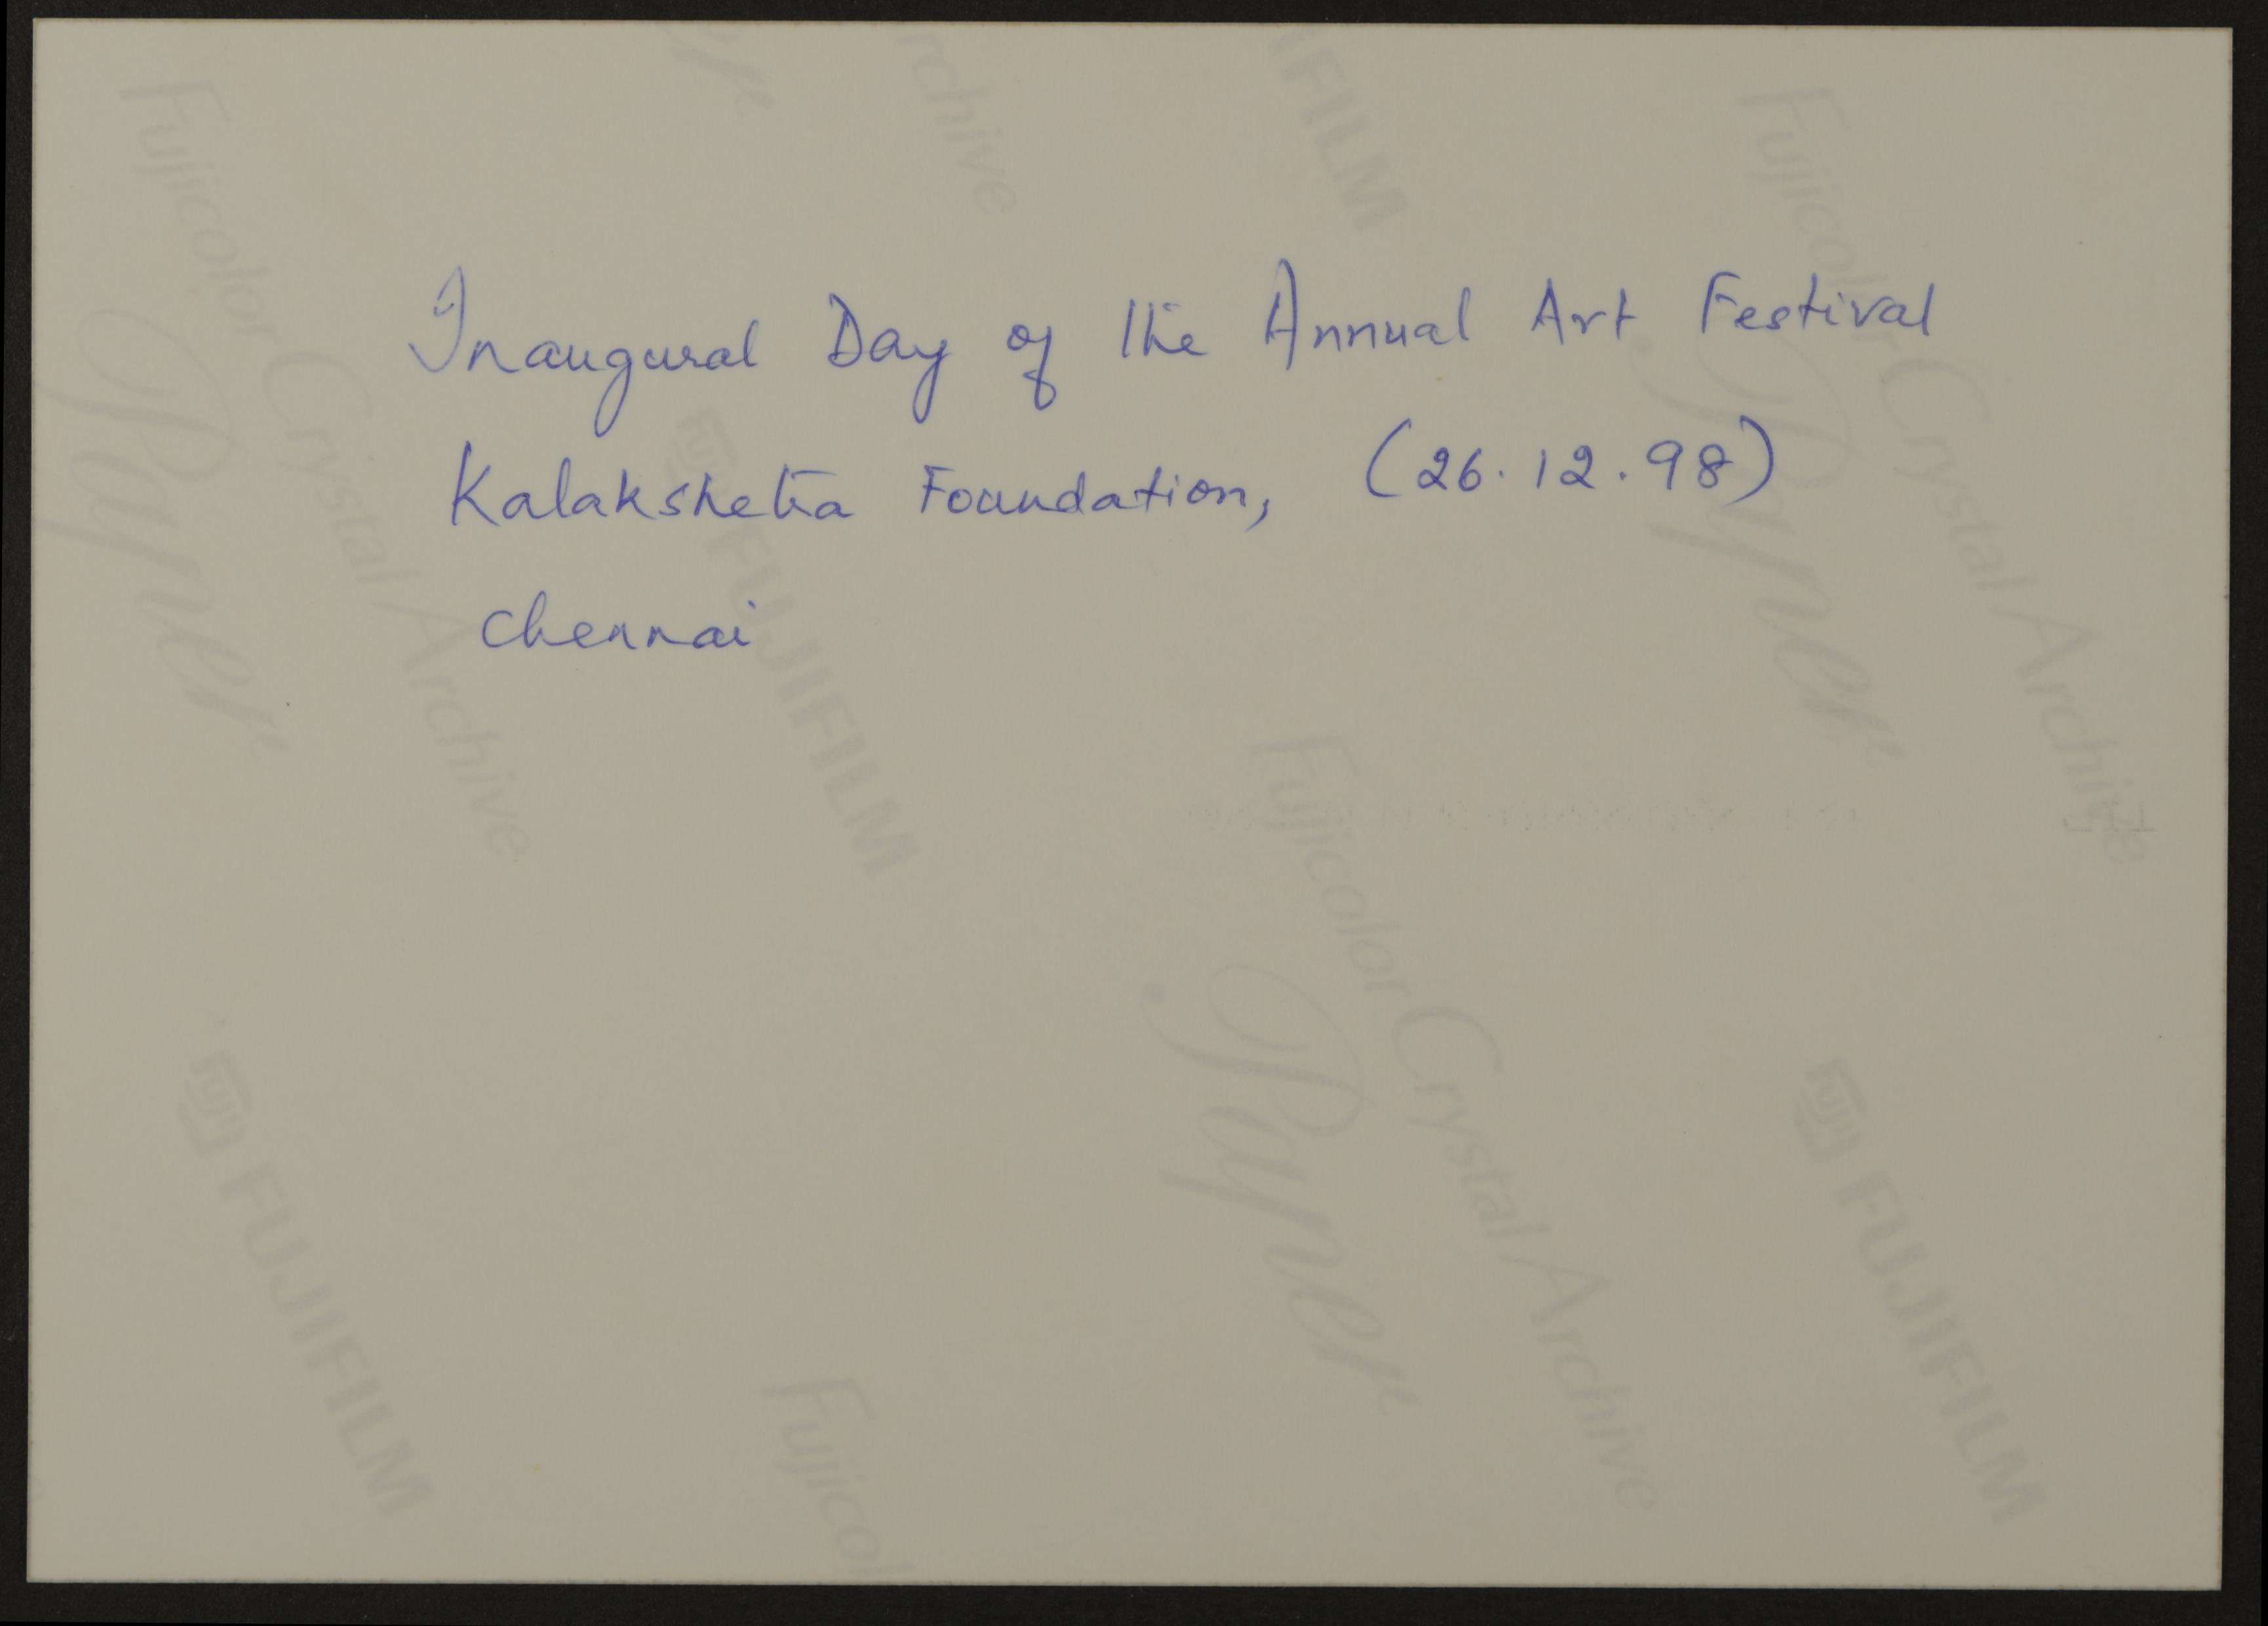 Inaugural Day of the Annual Art Festival
Kalakshetra Foundation, (26.12.98)
Chennai
Fujicolor Crystal Archive
Paper
FUJIFILM
per
rchive
IFILM
Fujicolor Crystal Archive
Paper
FUJI FUJIFILM
Fujicolor Crystal Archive
Paper
FUJI FUJIFILM
FUJI FUJIFILM
Fujicol